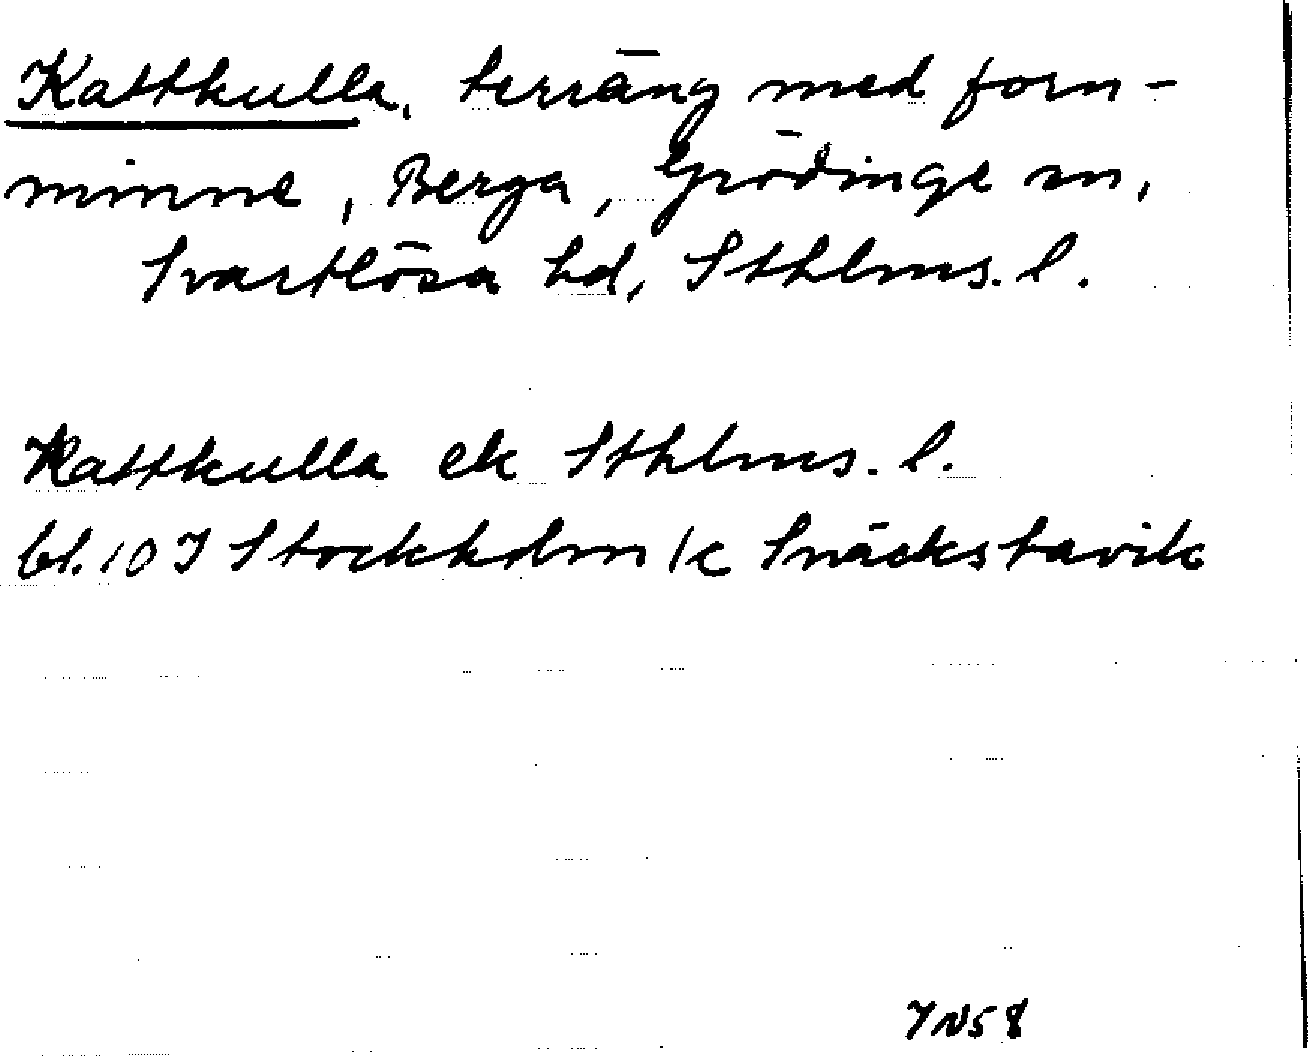 Kattkulla, terräng med forn-
minne, Berga, Grödinge sn,
Svartlösa hd, Sthlms. l.
Kattkulla ek Sthlms. l.
bl. 10 I Stockholm /c Snäckstavik
IN58